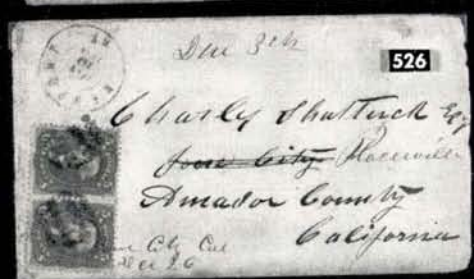 Due 3ct
526
Charley Shattuck Esq
Ione City Placerville
Amador County
California
Ione City Cal
Dec 26